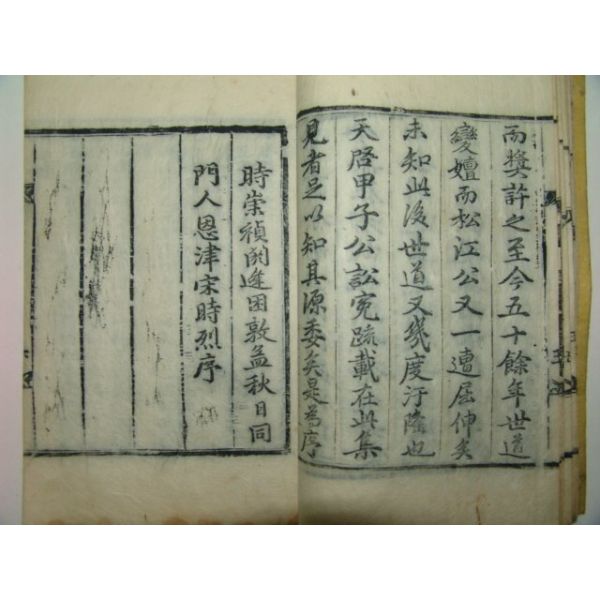 而奬許之至今五十餘年世道
變嬗而松江公又一遭屈伸矣
未知此後世道又幾度汙隆也
天啓甲子公訟寃疏載在此集
見者足以知其源委矣是為序
時崇禎閼逢困敦孟秋日同
門人恩津宋時烈序